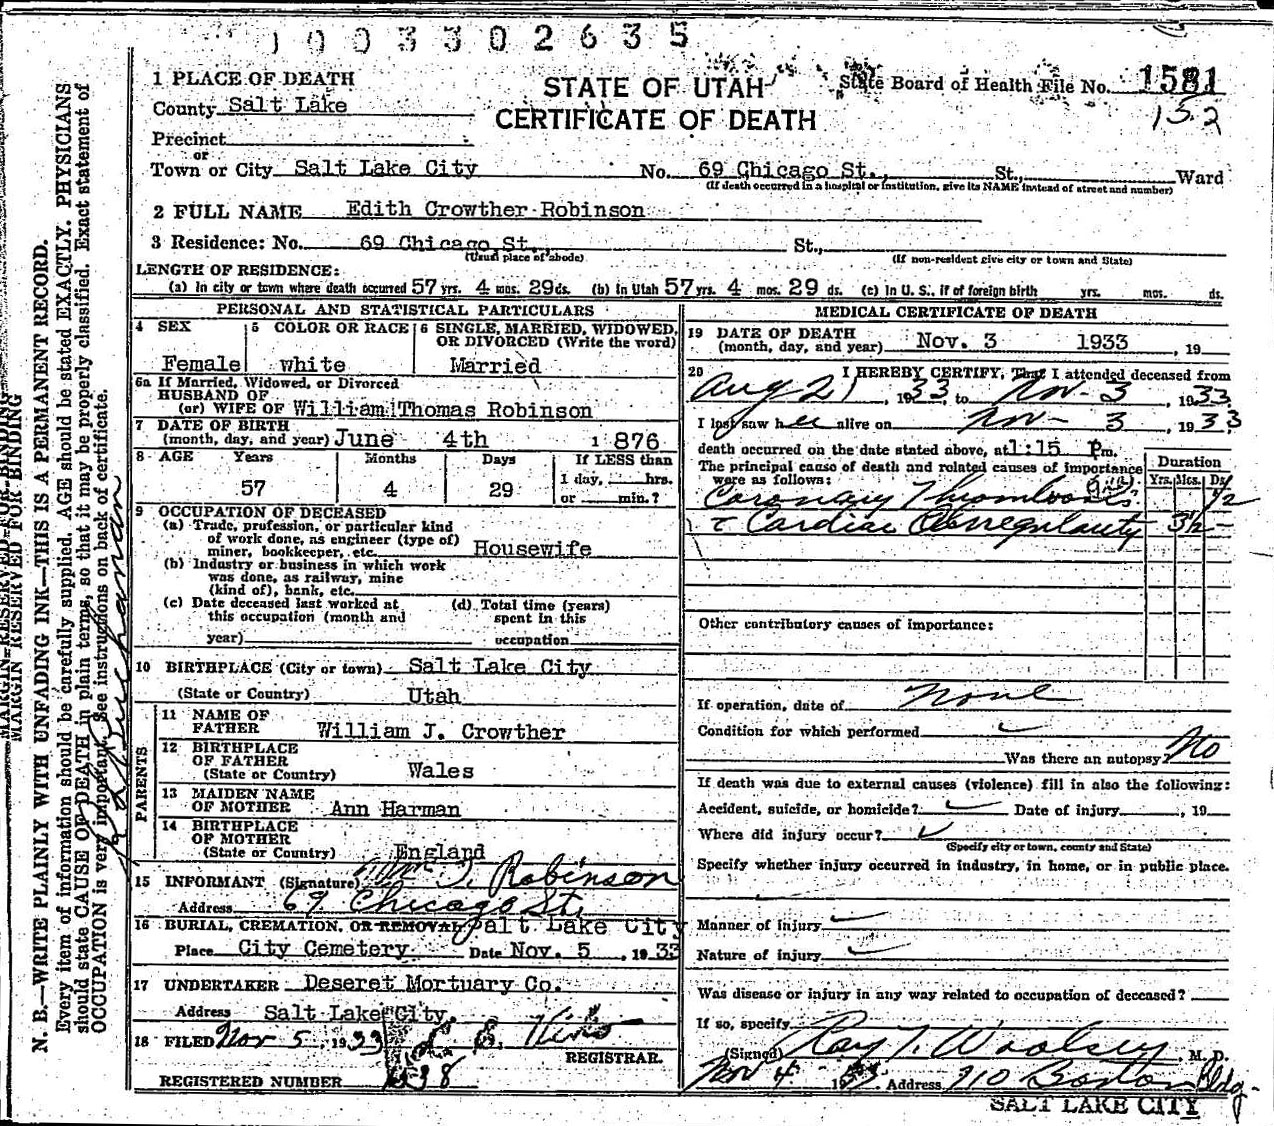 1003302635
1 PLACE OF DEATH
County Salt Lake
Precinct
or
Town or City Salt Lake City No. 69 Chicago St., St., Ward
(If death occurred in a hospital or institution, give its NAME instead of street and number)
STATE OF UTAH
CERTIFICATE OF DEATH
State Board of Health File No. 1581
152
2 FULL NAME Edith Crowther Robinson
3 Residence: No. 69 Chicago St., St.,
(Usual place of abode) (If non-resident give city or town and State)
LENGTH OF RESIDENCE:
(a) In city or town where death occurred 57 yrs. 4 mos. 29 ds. (b) in Utah 57 yrs. 4 mos. 29 ds. (c) in U. S., if of foreign birth yrs. mos. ds.
PERSONAL AND STATISTICAL PARTICULARS
4 SEX Female
5 COLOR OR RACE white
6 SINGLE, MARRIED, WIDOWED,
OR DIVORCED (Write the word)
Married
6a If Married, Widowed, or Divorced
HUSBAND OF
(or) WIFE OF William Thomas Robinson
7 DATE OF BIRTH
(month, day, and year) June 4th 1876
8 AGE Years Months Days If LESS than
57 4 29 1 day, hrs.
or min.?
9 OCCUPATION OF DECEASED
(a) Trade, profession, or particular kind
of work done, as engineer (type of)
miner, bookkeeper, etc. Housewife
(b) Industry or business in which work
was done, as railway, mine
(kind of), bank, etc.
(c) Date deceased last worked at
this occupation (month and
year)
(d) Total time (years)
spent in this
occupation
10 BIRTHPLACE (City or town) Salt Lake City
(State or Country) Utah
PARENTS
11 NAME OF
FATHER William J. Crowther
12 BIRTHPLACE
OF FATHER
(State or Country) Wales
13 MAIDEN NAME
OF MOTHER Ann Harman
14 BIRTHPLACE
OF MOTHER
(State or Country) England
15 INFORMANT (Signature) Wm T. Robinson
Address 69 Chicago St.
16 BURIAL, CREMATION, OR REMOVAL Salt Lake City
Place City Cemetery Date Nov. 5, 1933
17 UNDERTAKER Deseret Mortuary Co.
Address Salt Lake City,
18 FILED Nov 5, 1933
REGISTRAR.
REGISTERED NUMBER
MEDICAL CERTIFICATE OF DEATH
19 DATE OF DEATH
(month, day, and year) Nov. 3 1933, 19
20 I HEREBY CERTIFY, That I attended deceased from
Aug 21, 1933 to Nov- 3, 1933
I last saw her alive on Nov- 3, 1933
death occurred on the date stated above, at 1:15 Pm.
The principal cause of death and related causes of importance
were as follows:
Duration
Yrs. Mos. Ds.
Coronary Thrombosis 1/2
Cardiac 3 1/2 -
Other contributory causes of importance:
If operation, date of None
Condition for which performed
Was there an autopsy? No
If death was due to external causes (violence) fill in also the following:
Accident, suicide, or homicide? Date of injury, 19
Where did injury occur?
(Specify city or town, county and State)
Specify whether injury occurred in industry, in home, or in public place.
Manner of injury
Nature of injury
Was disease or injury in any way related to occupation of deceased?
If so, specify
(Signed) Ray T. Woolsey, M. D.
Nov 4 1933 Address 710 Boston Bldg-
SALT LAKE CITY
MARGIN RESERVED FOR BINDING
N. B.—WRITE PLAINLY WITH UNFADING INK—THIS IS A PERMANENT RECORD.
Every item of information should be carefully supplied. AGE should be stated EXACTLY. PHYSICIANS
should state CAUSE OF DEATH in plain terms, so that it may be properly classified. Exact statement of
OCCUPATION is very important. See instructions on back of certificate.